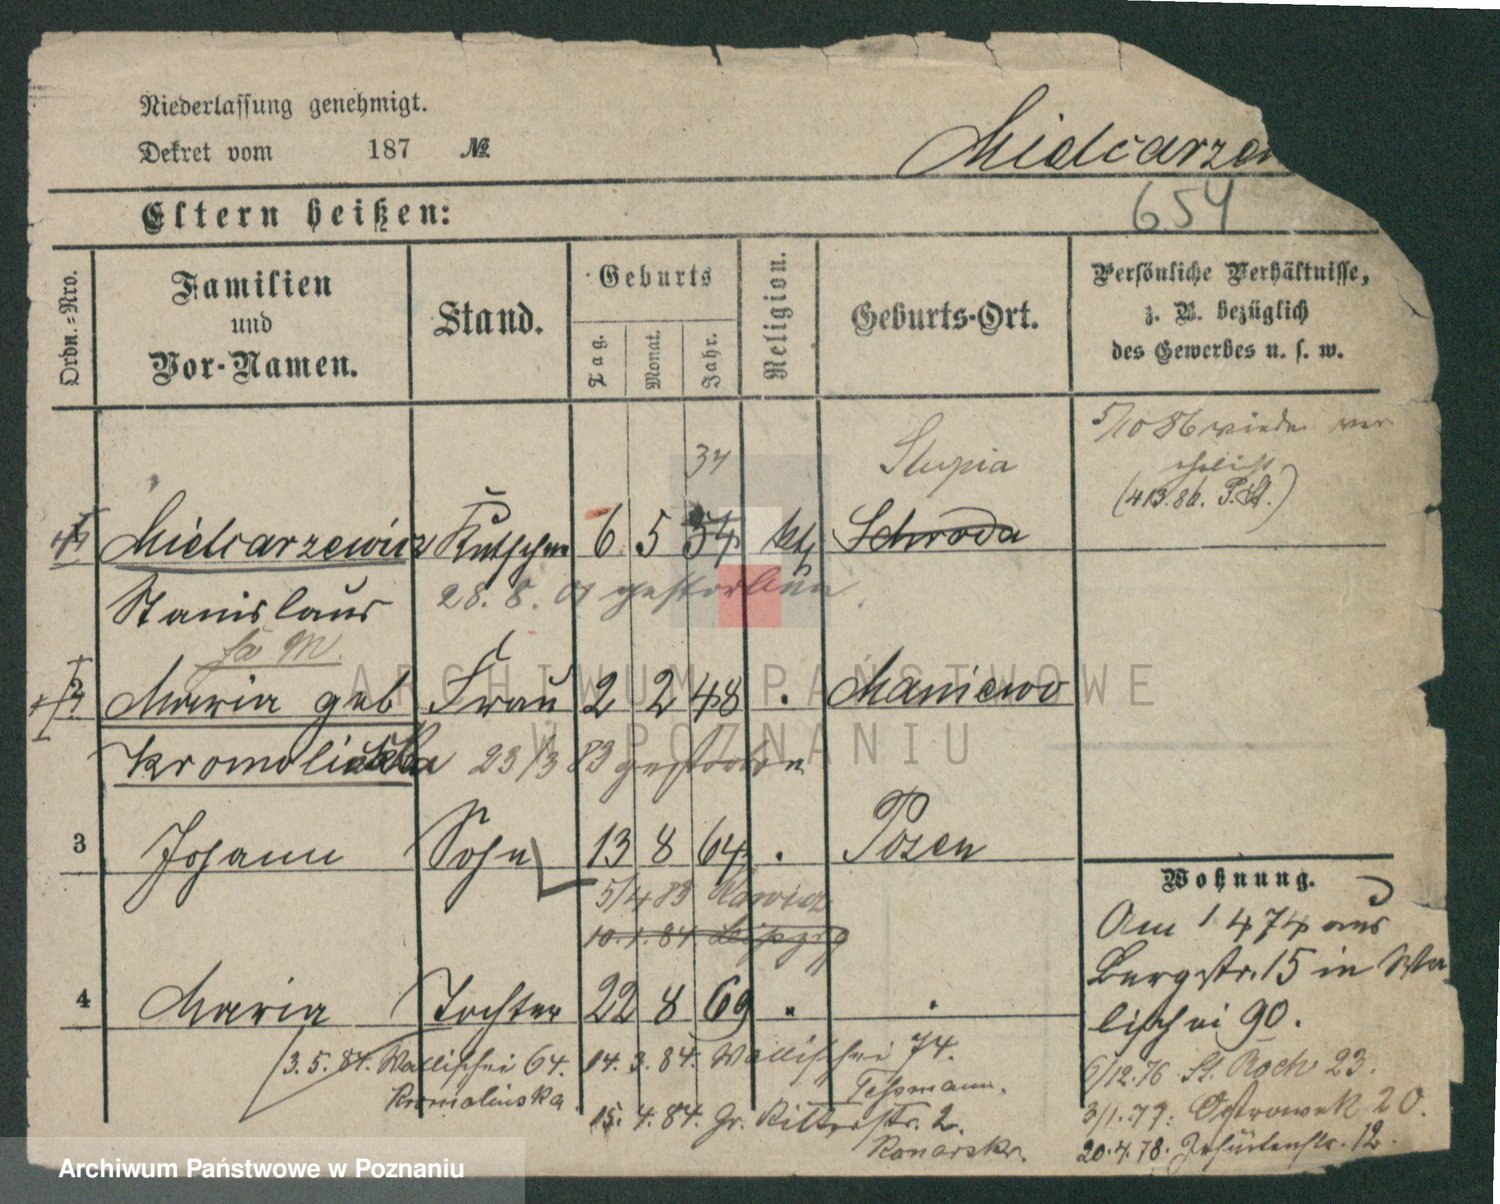 Niederlassung genehmigt.
Dekret vom 187 №
Mielcarzew
654
Eltern heißen:
Ordn.-Nro.
Familien
und
Vor-Namen.
Stand.
Geburts
Tag.
Monat.
Jahr.
Religion.
Geburts-Ort.
Persönliche Verhältnisse,
z. B. bezüglich
des Gewerbes u. s. w.
5/10 86 wieder ver
ehelicht
(413.86. P.St.)
34 Slupia
1 Mielcarzewicz Kutscher 6 5 54 kth Schroda
Stanislaus 28. 8. 01 gestorben.
2 Maria geb Frau 2 2 48 . Maniewo
Kromolicka 23/3 83 gestorben
3 Johann Sohn 13 8 64 . Posen
5/4 83 Rawicz
10. 1. 84 Leipzig
4 Maria Tochter 22 8 69 " .
3. 5. 84. Wallischei 64.
Kromolinska
14. 3. 84. Wallischei 74.
Tessmann.
15. 4. 84. Gr. Ritterstr. 2.
Wohnung.
Am 1. 4 74 aus
Bergstr. 15 in Wa
lischei 90.
6/12. 76 St. Roch 23.
3/1. 77. Ostrowek 20.
20. 4. 78. Jesuitenstr. 12.
ARCHIWUM PAŃSTWOWE
W POZNANIU
Archiwum Państwowe w Poznaniu